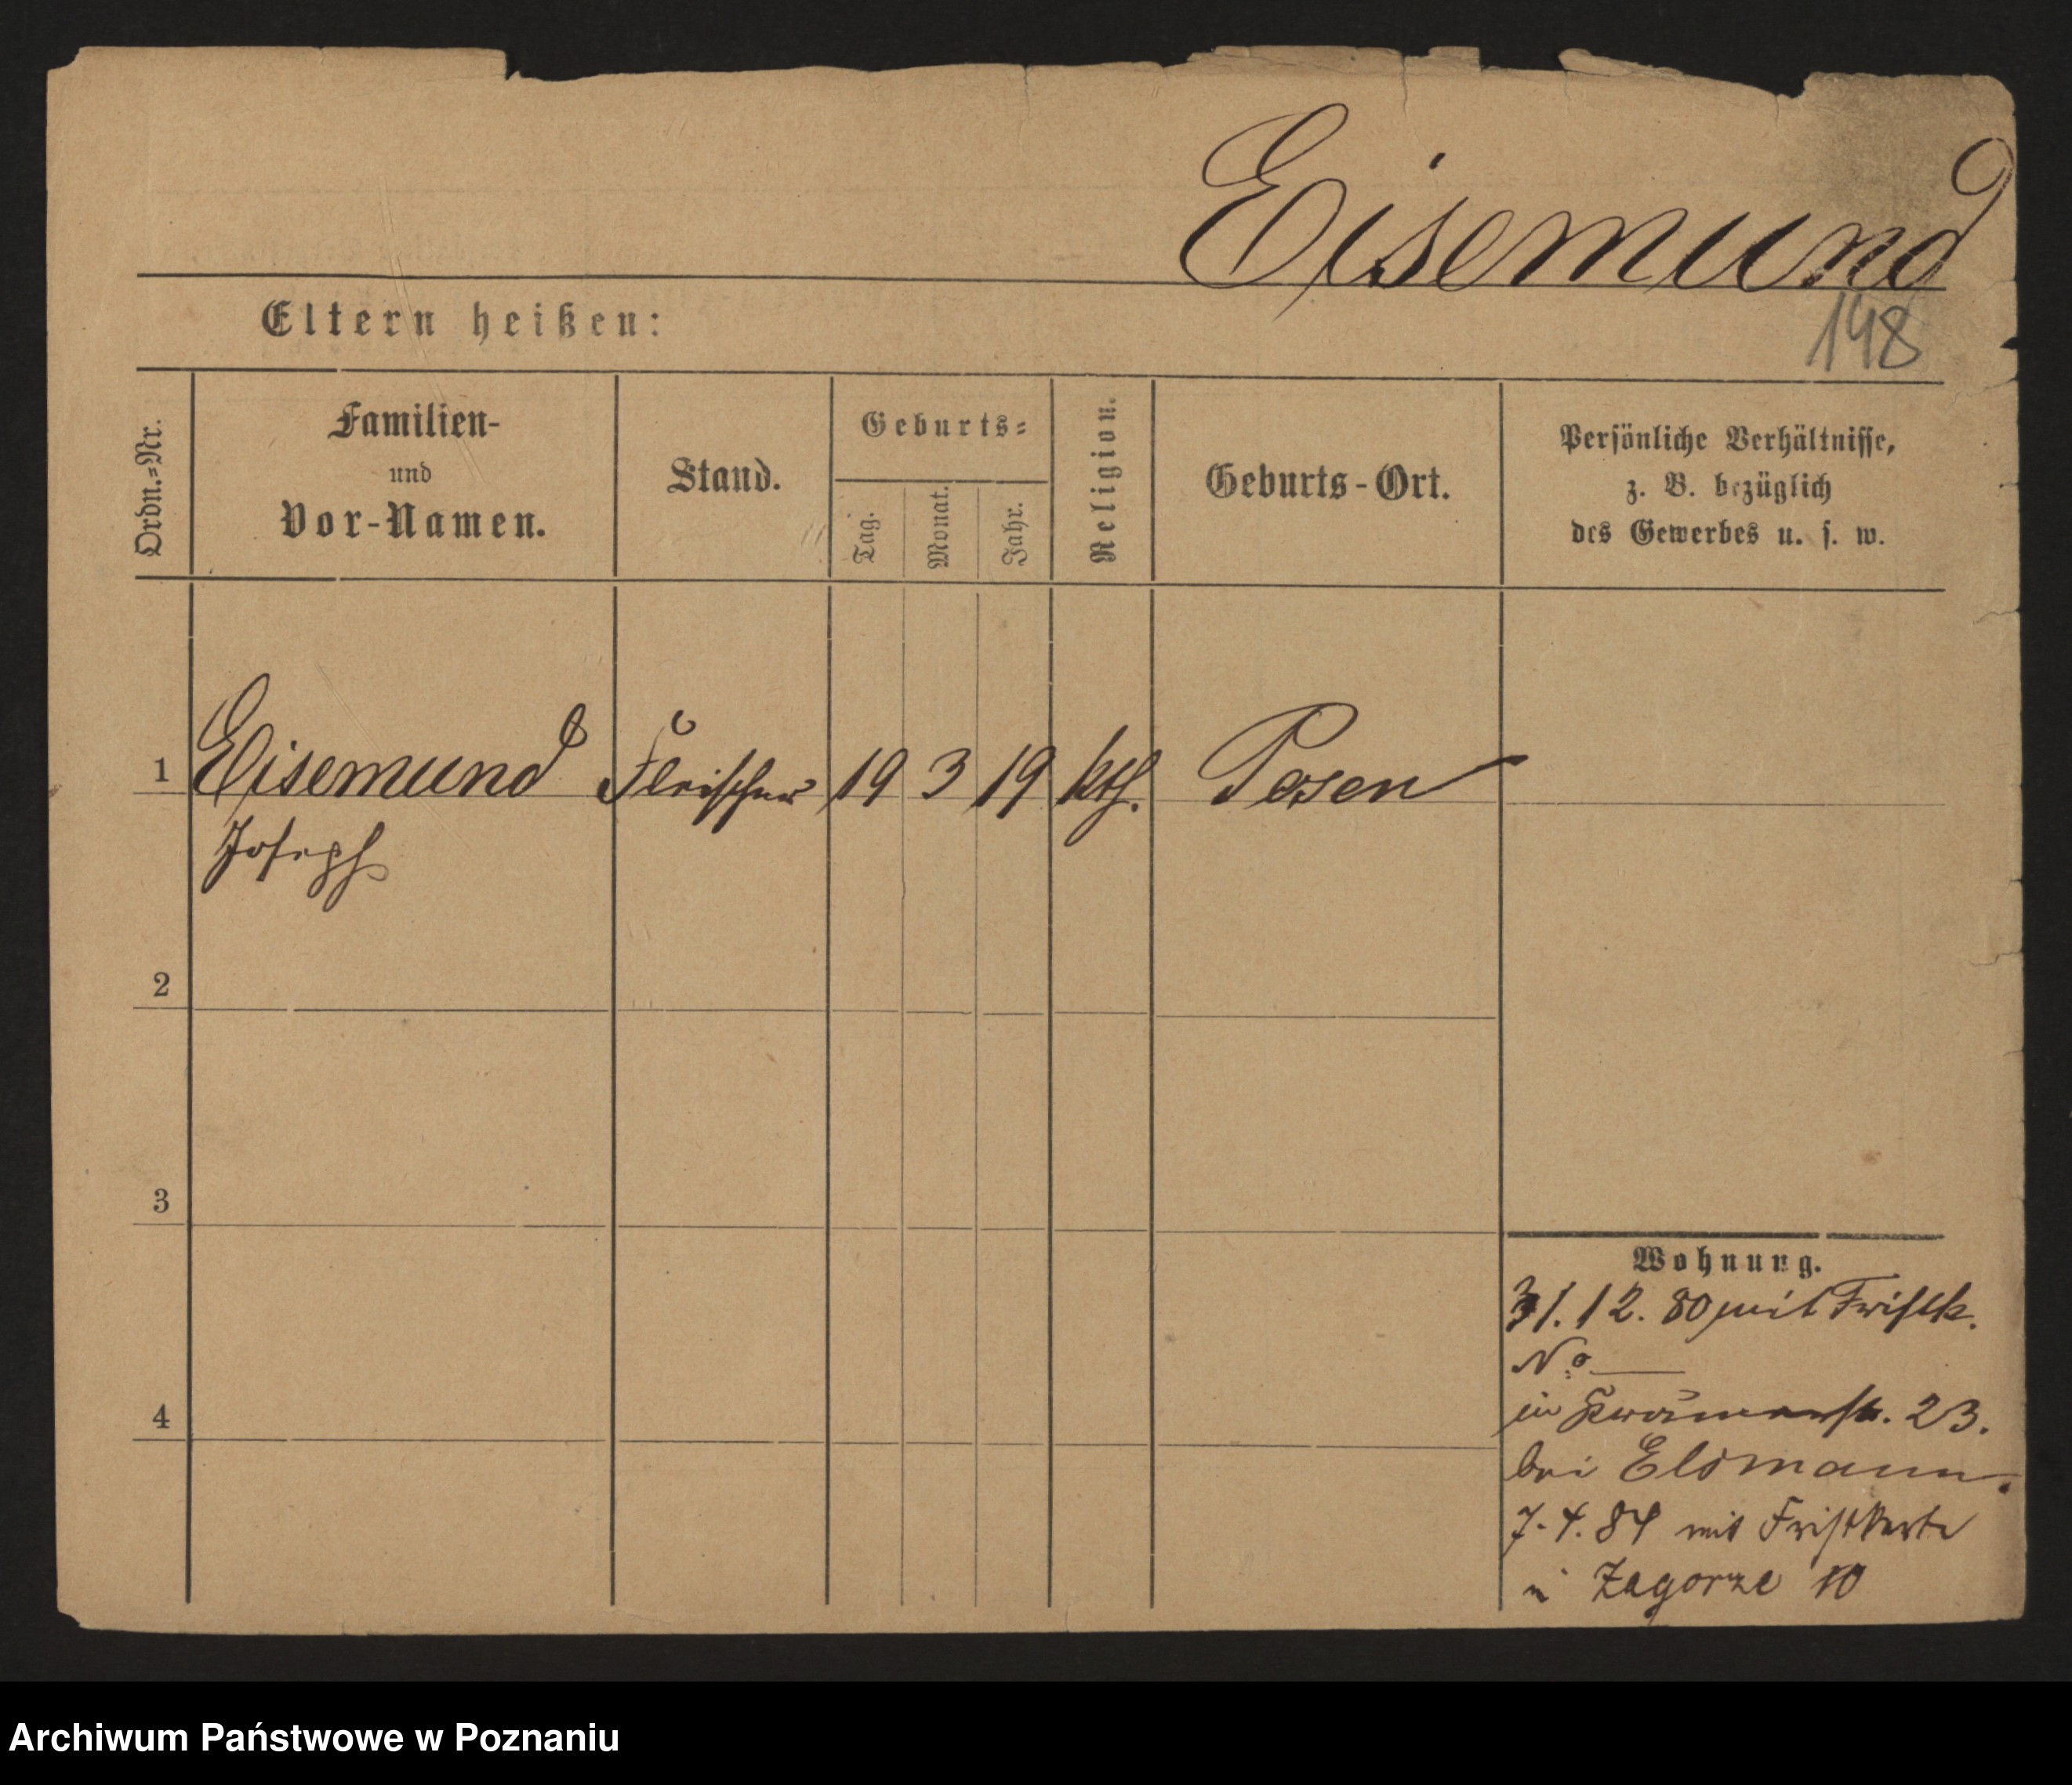 Eisemund
148
Eltern heißen:
Ordn.=Nr.
Familien-
und
Vor-Namen.
Stand.
Geburts=
Tag.
Monat.
Jahr.
Religion.
Geburts-Ort.
Persönliche Verhältnisse,
z. B. bezüglich
des Gewerbes u. s. w.
1 Eisemund Fleischer 19 3 19 kth. Posen
Joseph
2
3
4
Wohnung.
31. 12. 80 mit Fristk.
No —
in 23.
bei Elsmann.
7. 4. 84 mit Fristkarte
in Zagorze 10
Archiwum Państwowe w Poznaniu